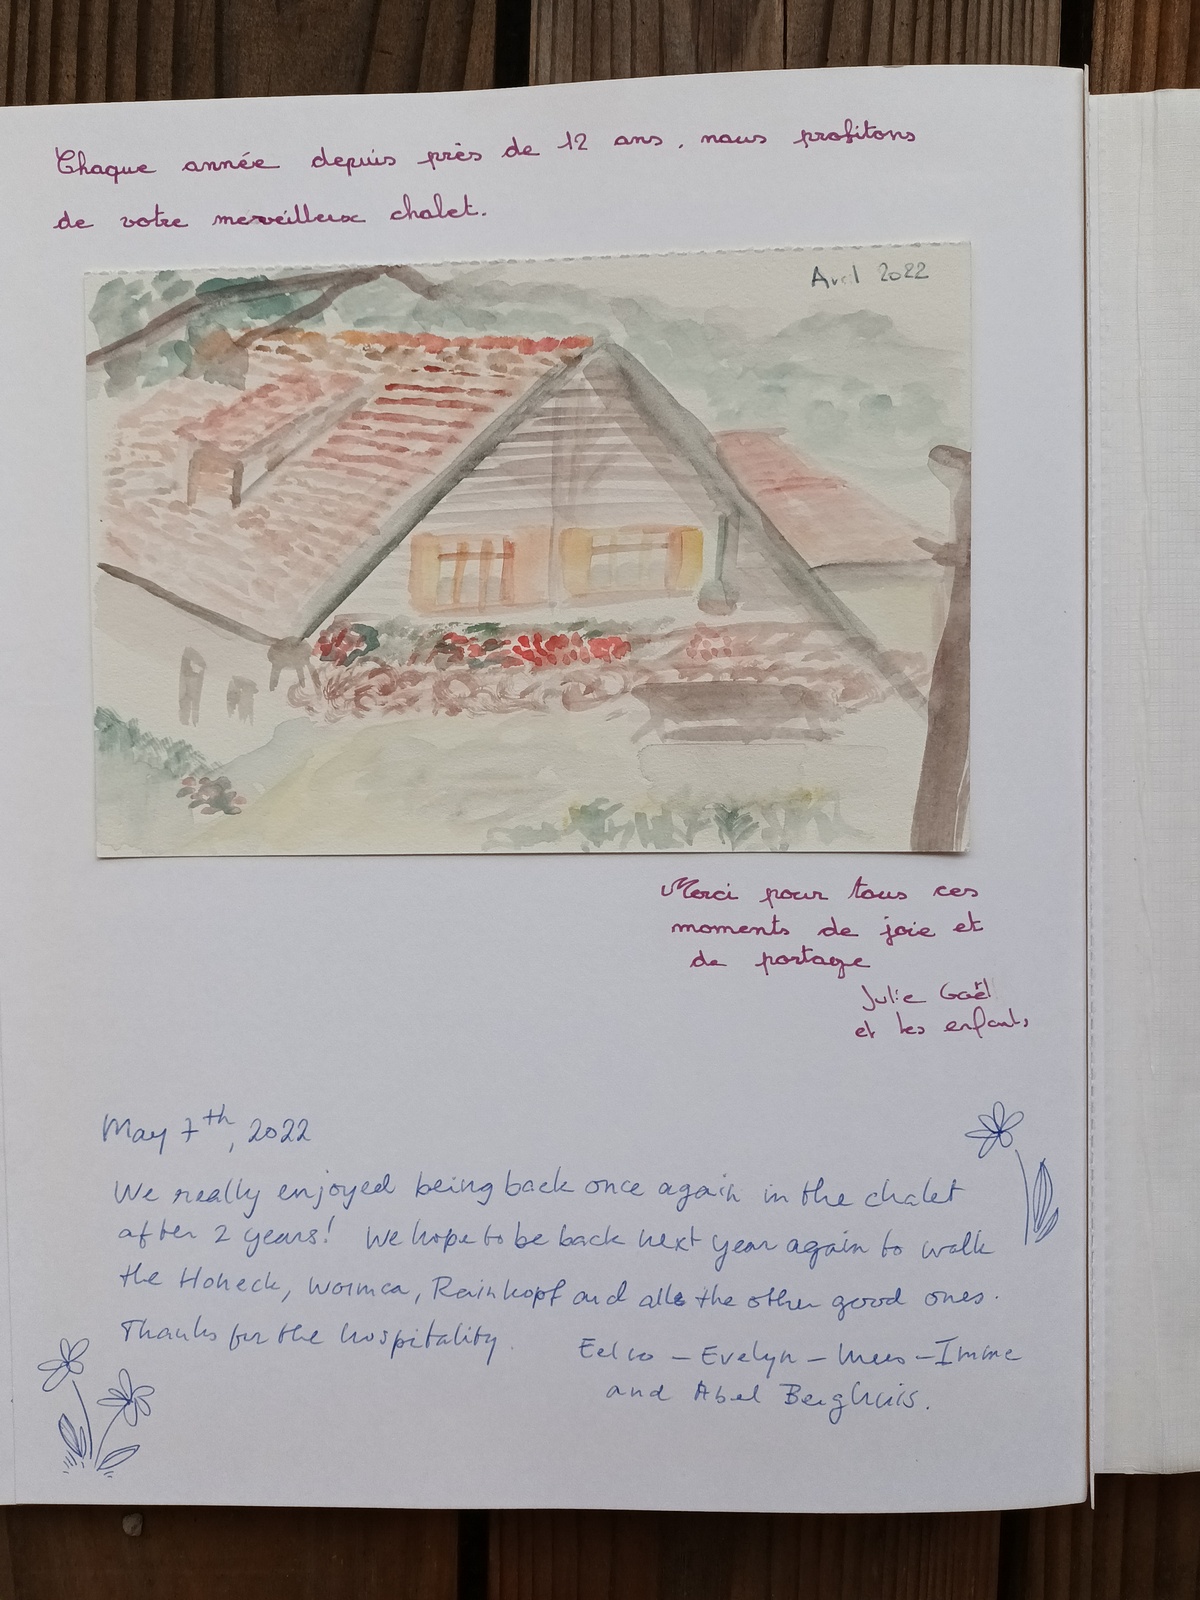 Chaque année depuis près de 12 ans, nous profitons
de votre merveilleux chalet.
Avril 2022
Merci pour tous ces
moments de joie et
de partage
Julie Gaël
et les enfants
May 7th, 2022
We really enjoyed being back once again in the chalet
after 2 years! We hope to be back next year again to walk
the Honeck, Wormca, Rainkopf and alle the other good ones.
Thanks for the hospitality.
Eelco - Evelyn - Mees - Imme
and Abel Berghuis.